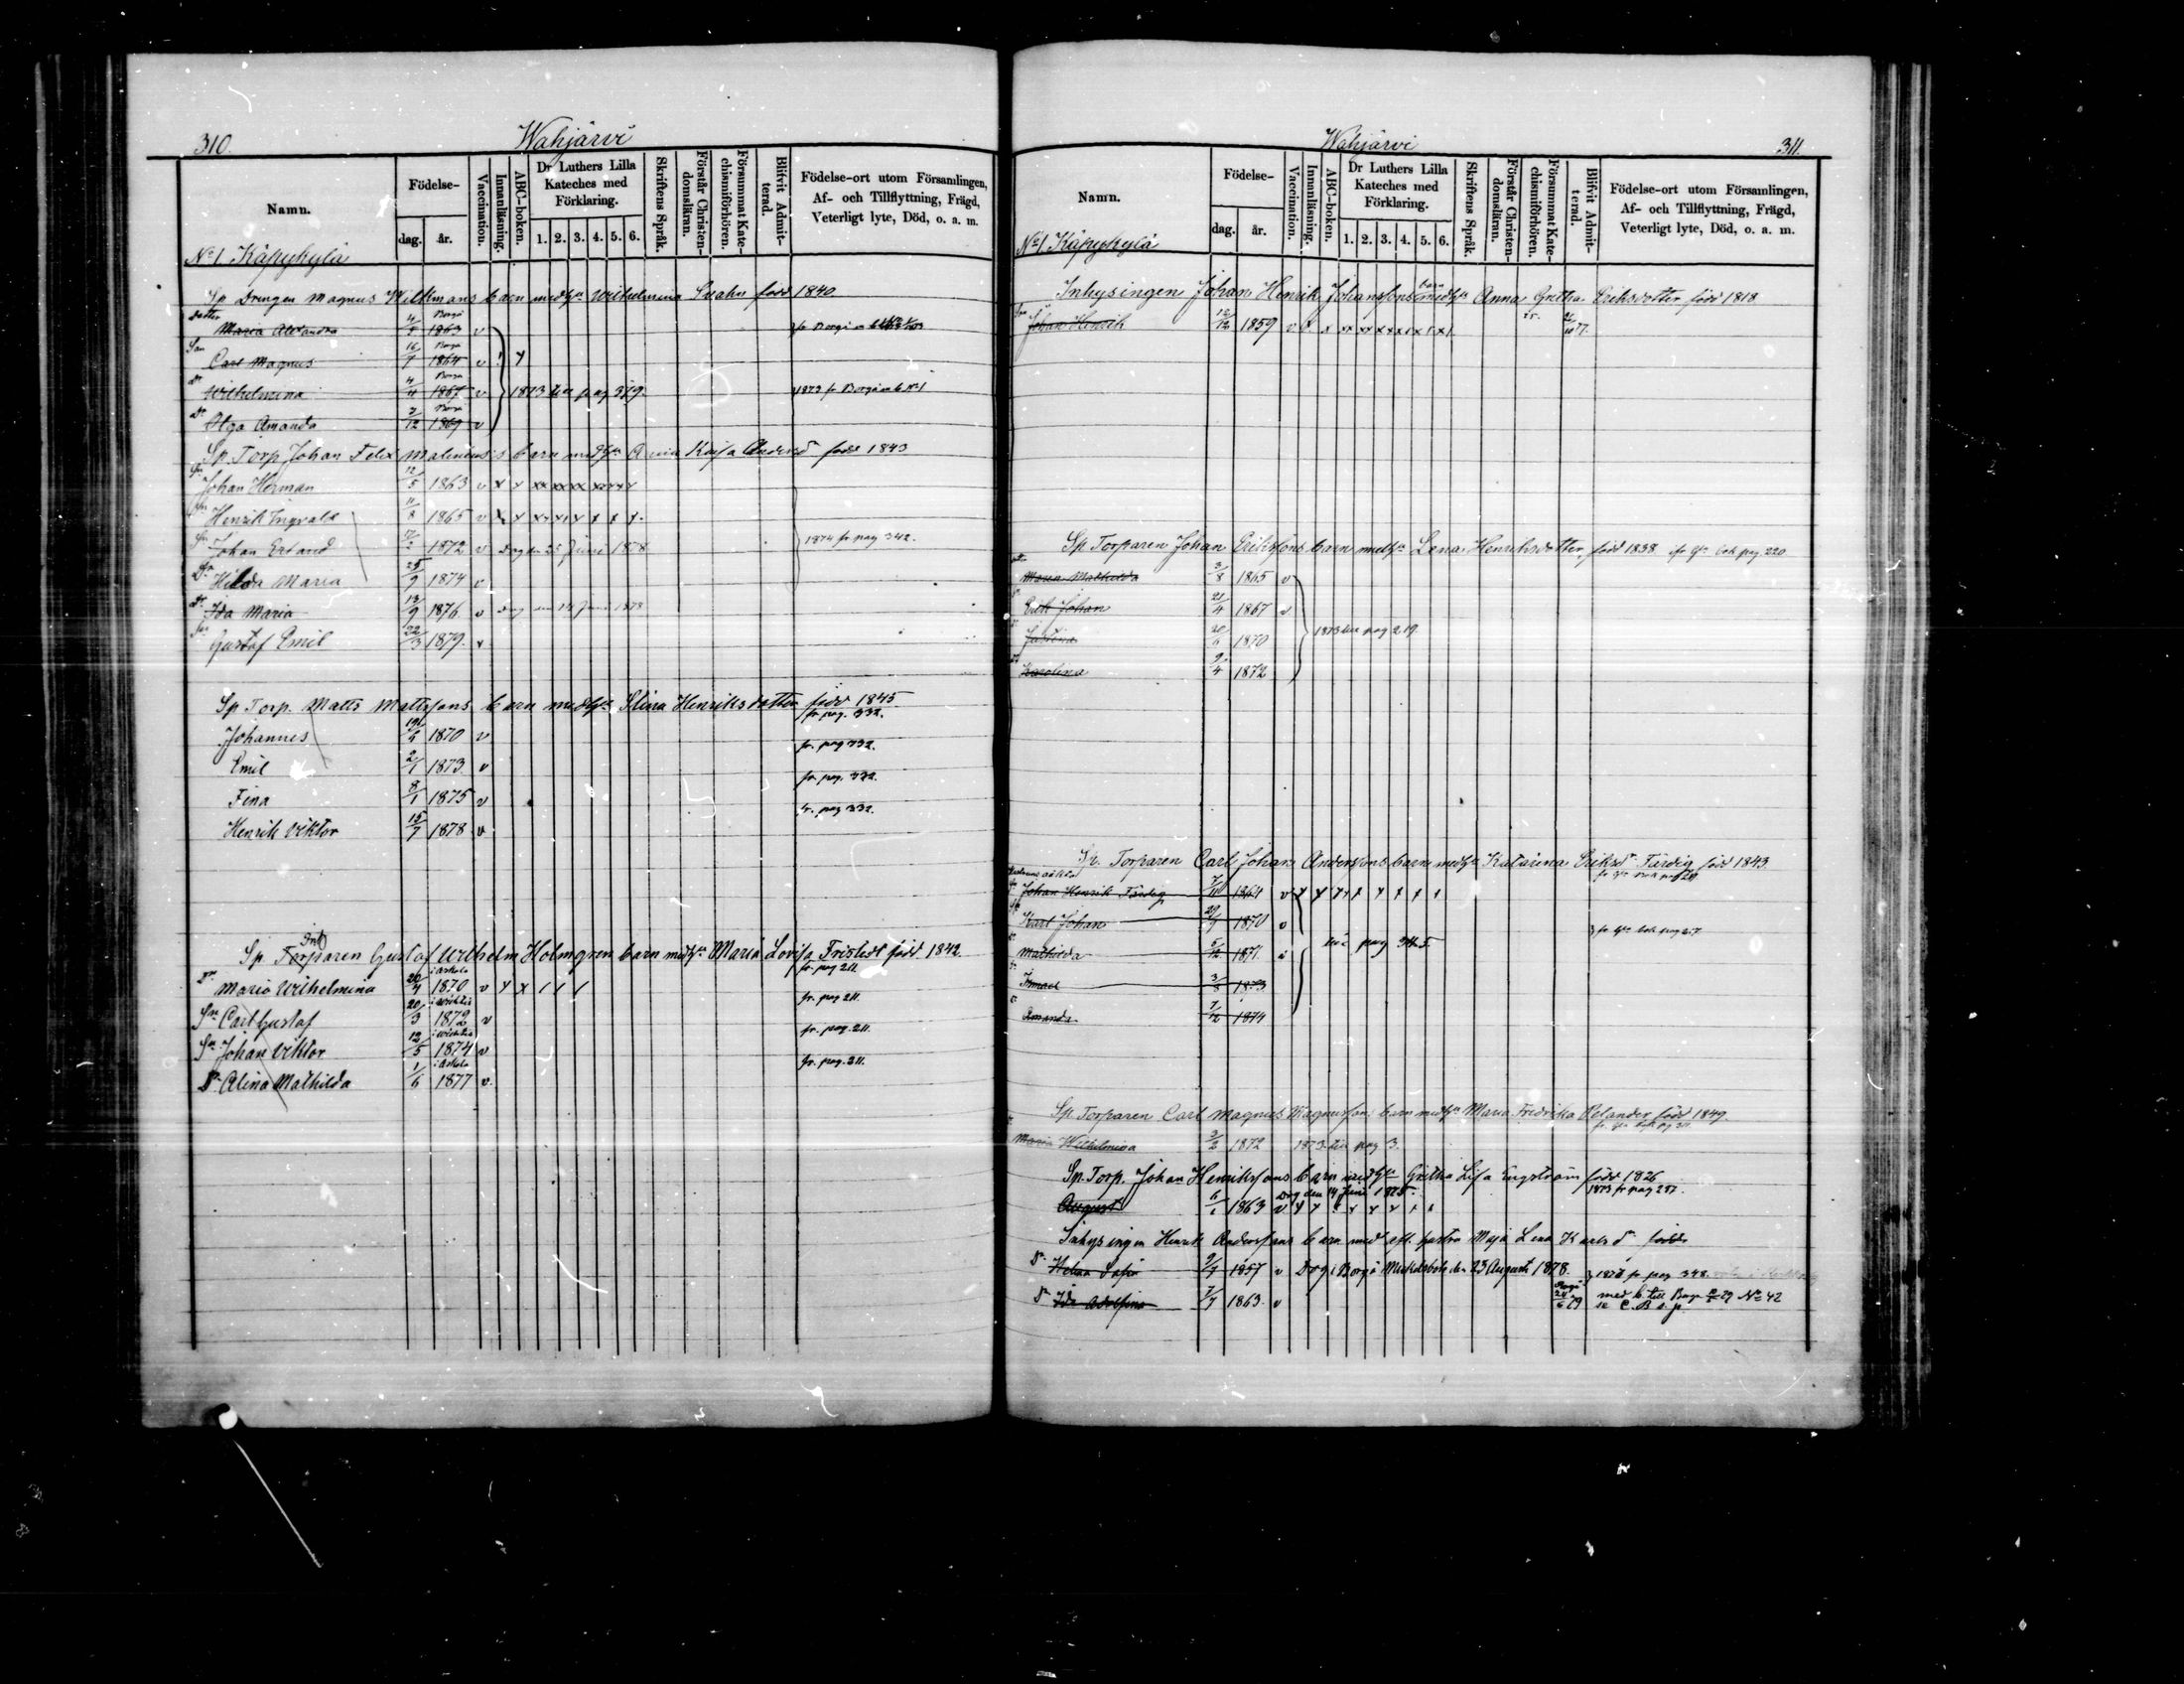 310.
Wahjärvi
Namn.
Födelse-
dag.
år.
Vaccination.
Innanläsning.
ABC-boken.
Dr Luthers Lilla
Kateches med
Förklaring.
1. 2. 3. 4. 5. 6.
Skriftens Språk.
Förstår Christen-
domsläran.
Försummat Kate-
chismiförhören.
Blifvit Admit-
terad.
Födelse-ort utom Församlingen,
Af- och Tillflyttning, Frägd,
Veterligt lyte, Död, o. a. m.
No 1. Käpykylä
Sp Drengen Magnus Wilkmans barn med hu Wilhelmina Svahn född 1840.
Dotter Maria Alexandra 4/5 Borgå 1863 v fr Borgå
Son Carl Magnus 16/7 Borgå 1864 v
Dr Wilhelmina 4/4 Borgå 1867 v 1873 till pag 379. 1873 fr Borgå
Dr Olga Amanda 7/12 Borgå 1869 v
Sp Torp Johan Felix Malenius's barn med hu Anna Kajsa Andersd född 1843
Sn Johan Herman 12/5 1863 v x x xx xx xx x x x x
Sn Henrik Ingvald 11/8 1865 v x x x x x x x x x
Sn Johan Erland 1872 v Dog den 25 Juni 1878 1874 fr pag 342.
Dr Hilda Maria 25/9 1874 v
Dr Ida Maria 13/9 1876 v Dog den 14 Juni 1878
Sn Gustaf Emil 22/3 1879. v
Sp Torp. Matts Mattssons barn med hu Stina Henriksdotter född 1845
fr pag. 332.
Johannes 19/4 1870 v
fr. pag 332.
Emil 2/1 1873. v
fr. pag. 332.
Fina 8/1 1875 v
fr. pag 332.
Henrik Viktor 15/7 1878 v
Inh
Sp. Torparen Gustaf Wilhelm Holmgren barn med hu Maria Lovisa Fristedt född 1842.
fr pag 211
Dr Maria Wilhelmina 20/4 i Askola 1870 v x x / / /
fr. pag 211.
Sn Carl Gustaf 20/3 1872 v
fr. pag. 211.
Sn Johan Viktor 12/5 1874 v
fr. pag. 211.
Dr Alina Mathilda 1/6 i Askola 1877 v.
Wahjärvi
311.
Namn.
Födelse-
dag.
år.
Vaccination.
Innanläsning.
ABC-boken.
Dr Luthers Lilla
Kateches med
Förklaring.
1. 2. 3. 4. 5. 6.
Skriftens Språk.
Förstår Christen-
domsläran.
Försummat Kate-
chismiförhören.
Blifvit Admit-
terad.
Födelse-ort utom Församlingen,
Af- och Tillflyttning, Frägd,
Veterligt lyte, Död, o. a. m.
No 1. Käpykylä
Inhysingen Johan Henrik Johanssons barn med hu Anna Gretha Eriksdotter född 1818
Sn Johan Henrik 12/12 1859 v x x xx xx x x x x x x
Sp. Torparen Johan Erikssons barn med hu Lena Henriksdotter, född 1838 pag. 220
Maria Mathilda 3/8 1865 v
Erik Johan 21/4 1867 v
Justina 20/6 1870 1873 till pag 219.
Karolina 9/4 1872
Sp. Torparen Carl Johan Anderssons barn med hu Katarina Eriksdr Tärdig född 1843.
Johan Henrik Tärdig 7/11 1864 v x x x x x x x x x
Karl Johan 29/9 1870 v
Mathilda 5/12 1871. v till pag 345
Ismael 3/8 1873
Amanda 7/12 1874
Sp Torparen Carl Magnus Magnusson barn med hu Maria Fredrika Relander född 1849.
Maria Wilhelmina 3/2 1872 1873 till pag 3.
Sp. Torp. Johan Henrikssons barn med hu Gretha Lisa Engström född 1826
Dog den 14 Juni 1875. 1873 fr pag 287.
August 1863 v x x x x x x x
Inhysingen Henrik Anderssons barn med afl. hustru Maja Lena Karlsd född
Dr Helena Sofia 9/7 1857 v Dog i Borgå Mickelsböle den 23 Augusti 1878. 1878 fr pag 348.
Dr Ida Adolfina 1863. v Borgå 24/6 79 med b. till Borgå No 42
se C. B s. p.